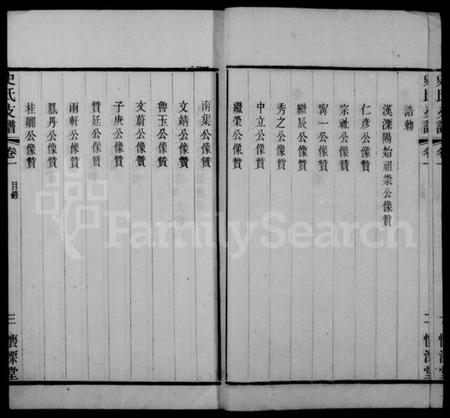 誥勅
漢溧陽始祖崇公像贊
仁彥公像贊
宗祉公像贊
寧一公像贊
繼辰公像贊
秀之公像贊
中立公像贊
繼榮公像贊
二
南渠公像贊
文靖公像贊
魯玉公像贊
文蔚公像贊
子庚公像贊
贊廷公像贊
雨軒公像贊
鳳丹公像贊
桂聊公像贊
史氏支譜 卷一 目錄 三 懷溧堂
FamilySearch